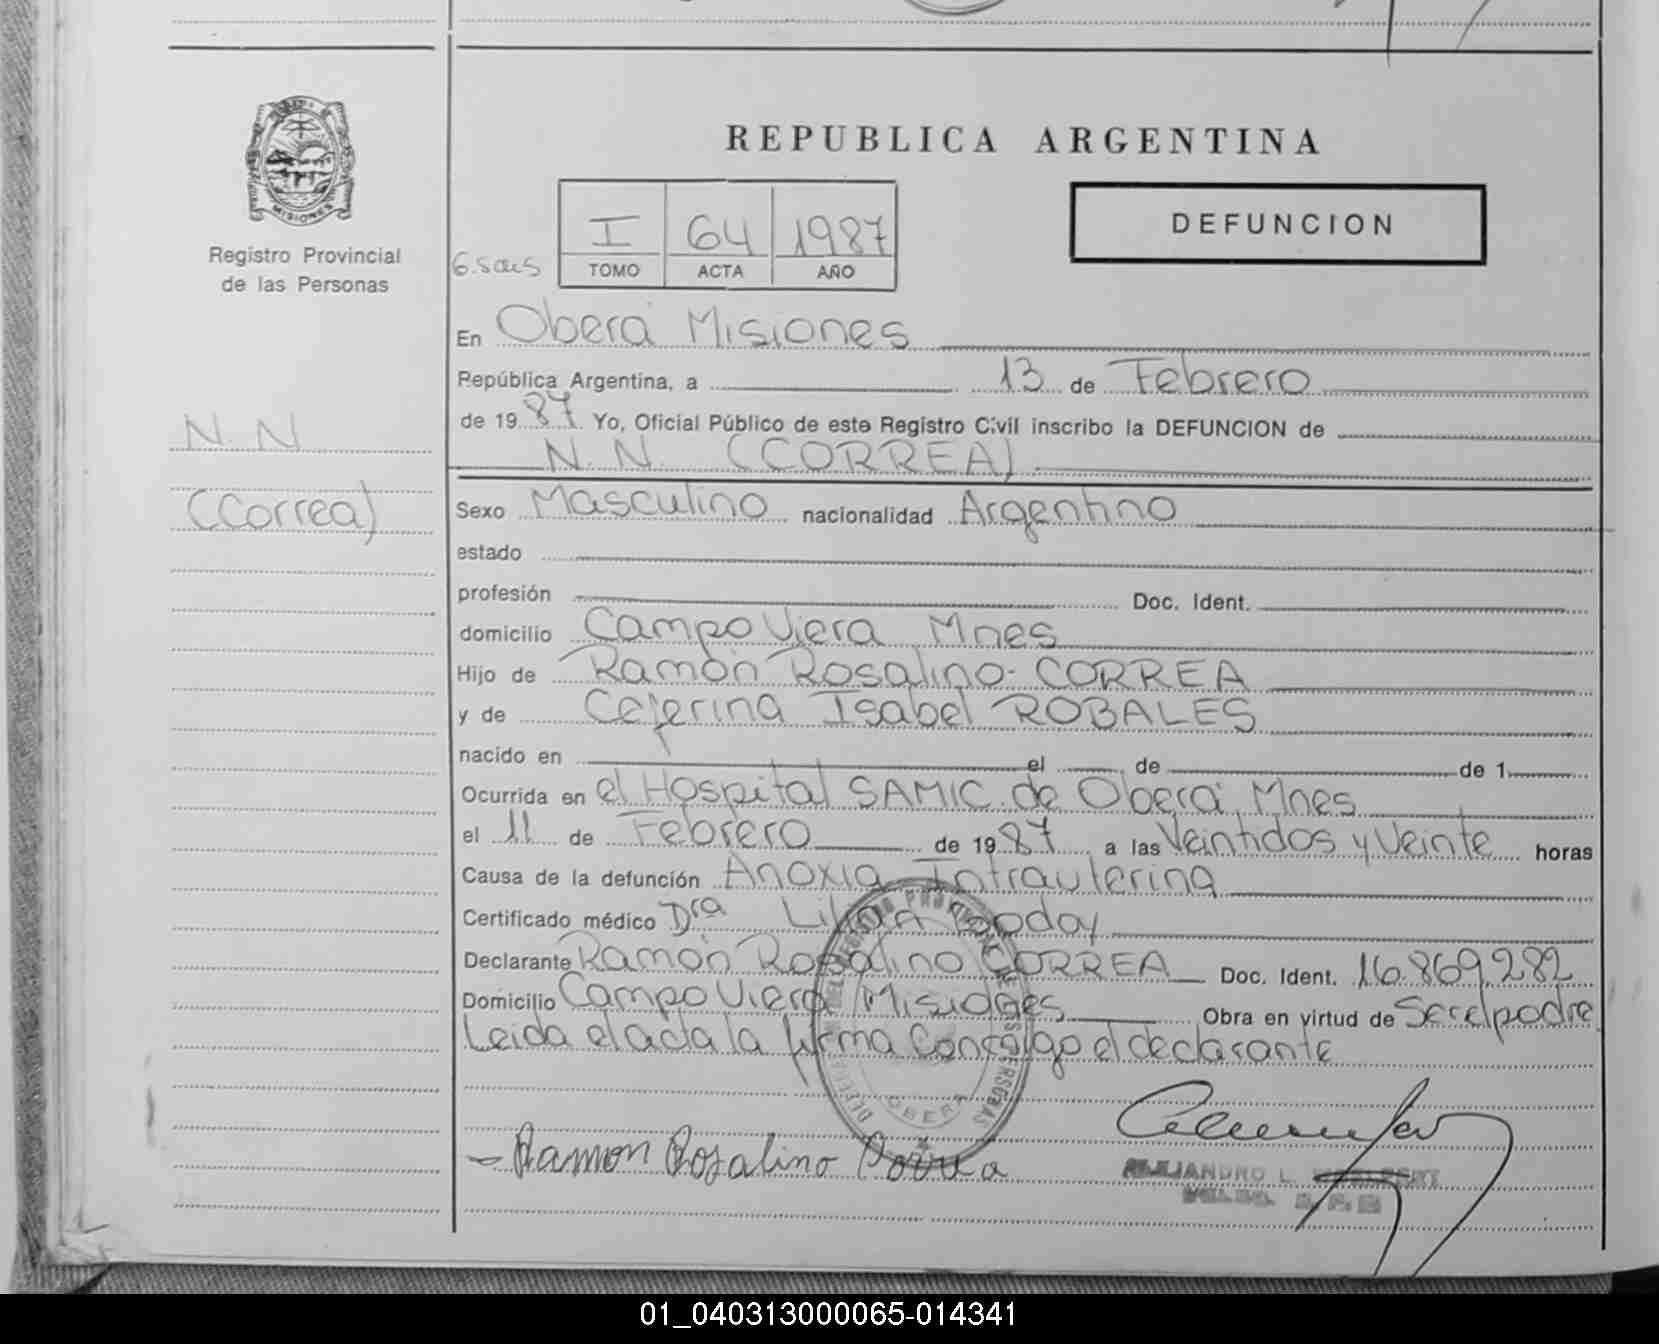 REPUBLICA ARGENTINA
MISIONES
Registro Provincial
de las Personas
I 64 1987
TOMO ACTA AÑO
DEFUNCION
En Oberá Misiones
República Argentina, a 13 de Febrero
de 1987 Yo, Oficial Público de este Registro Civil inscribo la DEFUNCION de
N.N. (CORREA)
N N
(Correa)
Sexo Masculino nacionalidad Argentino
estado
profesión Doc. Ident.
domicilio Campo Viera Mnes
Hijo de Ramón Rosalino CORREA
y de Ceferina Isabel ROBALES
nacido en el de de 1
Ocurrida en el Hospital SAMIC de Oberá Mnes
el 11 de Febrero de 1987 a las Veintidos y Veinte horas
Causa de la defunción Anoxia Intrauterina
Certificado médico Dra
Declarante Ramón Rosalino CORREA Doc. Ident. 16.869.282
Domicilio Campo Viera Misiones Obra en virtud de Ser el padre
Leida el acta la firma Conmigo el declarante
OBERA
Ramon Rosalino Correa
ALEJANDRO L.
01_040313000065-014341